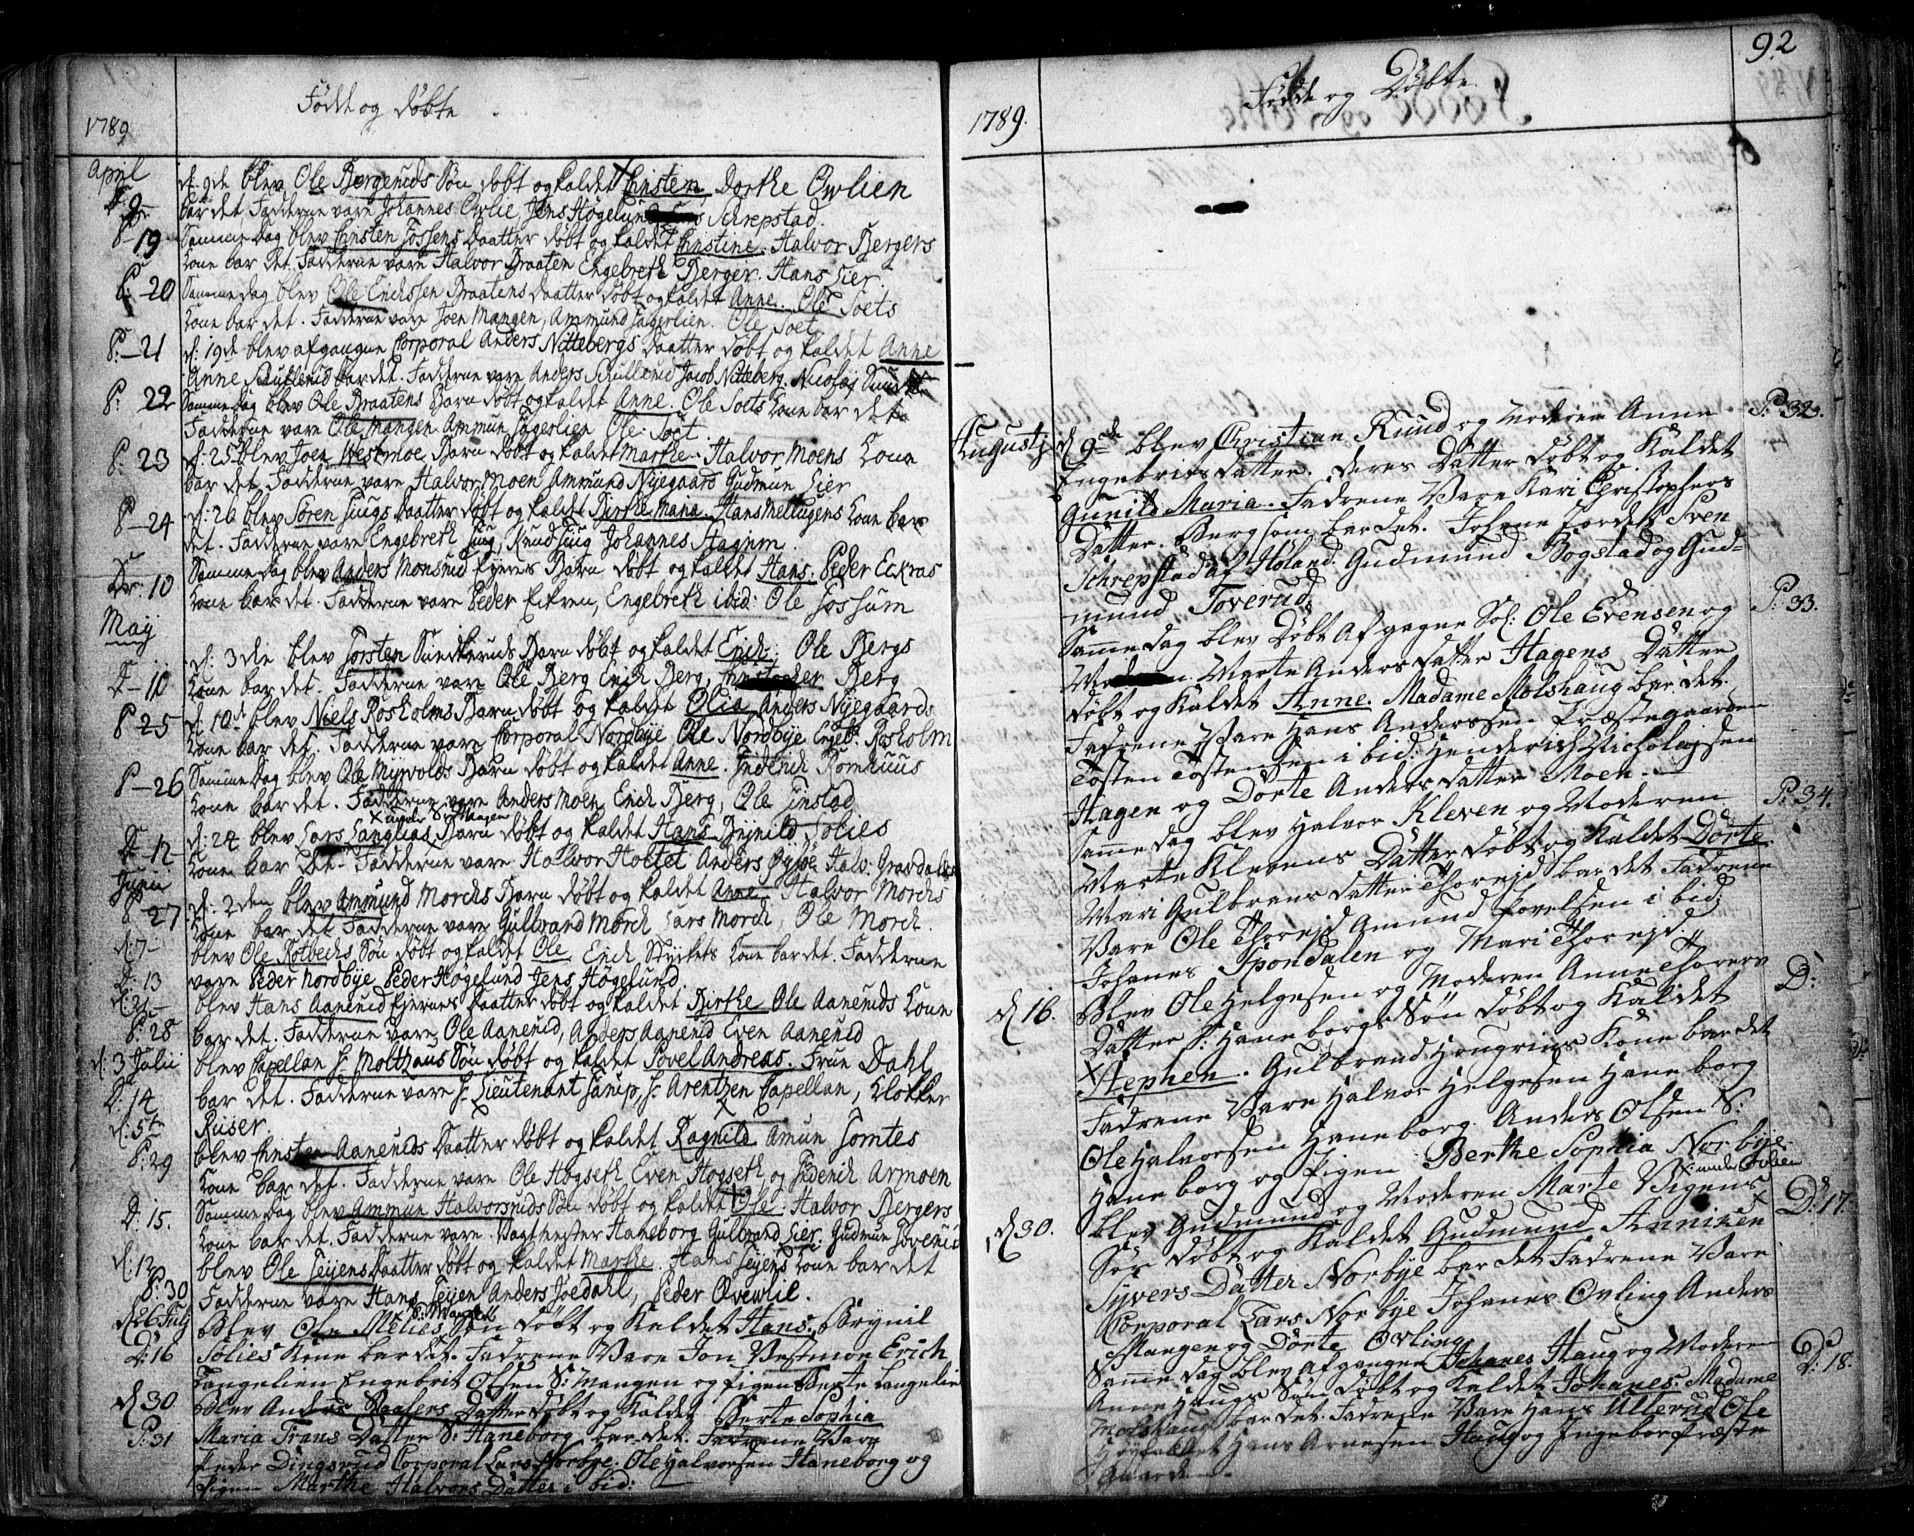 1789
Fødde og døbte
April
P. 9
d: 9de blev Ole Bergeruds Søn døbt og kaldet Christen, Dorthe Ovlien
bar det. Fadderne vare Johannes Ovlie, Jens Høgelund Schrepstad
P. 19
Samme dag blev Christen Jossens Daatter døbt og kaldet Christine. Halvor Bergers
Kone bar det. Fadderne vare Halvor Braaten Engebreth Berger. Hans Lier
P. 20
Samme dag blev Ole Erichssen Braatens daatter døbt og kaldet Anne. Ole Soets
Kone bar det. Fadderne vare Joen Mangen, Ammund Fagerlien. Ole Soet
P. 21
d: 19de blev afgangne Corporal Anders Nittebergs daatter døbt og kaldet Anne
Anne Skullerud bar det. Fadderne vare Anders Skullerud Jacob Nitteberg. Nicolaj
P. 22
Samme dag blev Ole Braatens Barn døbt og kaldet Anne. Ole Soets Kone bar det
Fadderne vare Ole Mangen Ammun Fagerlien Ole Soet
P. 23
d: 25 blev Joen Westmoe Barn døbt og kaldet Marthe. Halvor Moens Kone
bar det. Fadderne vare Halvor Moen Ammund Nyegaard Gudmun Lier
P. 24
d: 26 blev Søren Juugs daatter døbt og kaldet Birthe Maria. Hans Mellugens Kone bar
det. Fadderne vare Engebreth Juug, Knud Juug Johannes Stagum
Dr: 10
Samme dag blev Anders Monsrud Eyeres Barn døbt og kaldet Hans. Peder Eckras
Kone bar det. Fadderne vare Peder Eikren, Engebreth ibid: Ole Jossum
May
d: 3die blev Torsten Snedkeruds Barn døbt og kaldet Erich. Ole Bergs
D. 11
Kone bar det. Fadderne vare Ole Berg Erich Berg, Christopher Berg
P. 25
d: 10de blev Niels Rosholms Barn døbt og kaldet Olia Anders Nyegaards
Kone bar det. Fadderne vare Corporal Nordbye Ole Nordbye Engeb: Rosholm
P. 26
Samme dag blev Ole Myrvolds Barn døbt og kaldet Anne. Friderich Romhuus
Kone bar det. Fadderne vare Anders Moen Erich Berg, Ole Finstad
under S: Haagen
D. 12
d: 24 blev Lars Langlias Barn døbt og kaldet Hans Brynild Solies
Kone bar det. Fadderne vare Halvor Holtet Anders Halv: Gravdahls
Junii
P. 27
d: 2den blev Ammund Morchs Barn døbt og kaldet Anne Halvor Morchs
Kone bar det Fadderne vare Gulbrand Morch Lars Morch, Ole Morch.
d. 7
blev Ole Kolbechs Søn døbt og kaldet Ole Erich Stykets Kone bar det. Fadderne
D. 13
vare Peder Nordbye Peder Høgelund Jens Høgelund
d: 21
blev Hans Aanerud Eyernes daatter døbt og kaldet Birthe Ole Aaneruds Kone
P. 28
bar det. Fadderne vare Ole Aanerud, Anders Aanerud Even Aanerud
d: 3 Julii
blev Capellan Hr Molthaus Søn døbt og kaldet Povel Andreas. Frue Dahl
D. 14
bar det. Fadderne vare Hr Lieutenant Jamp, Hr Arentzen Capellan, Klokker
d: 5te
Ruser.
P. 29
blev Christen Aaneruds Daatter døbt og kaldet Ragnild Amun Tomtes
Kone bar det. Fadderne vare Ole Hogseth Even Hogseth og Friderich Armoen
D. 15.
Samme dag blev Ammun Halvorsruds Søn døbt og kaldet Ole Halvor Bergers
Kone bar det. Fadderne vare. Vagtmester Haneborg Gulbrand Lier. Gudmun Toverud
d: 12
blev Ole Teijens Daatter døbt og kaldet Marthe. Hans Teijens Kone bar det
P. 30
Fadderne vare Hans Teijen Anders Joedahl, Peder Ovewiil.
d 26 July
S: Mangen
Blev Ole Melies Søn Døbt og Kaldet Hans. Brynil
D. 16
Solies Kone bar det. Fadrene Vare Jon Vestmon Erich
Langelien Engebrit Olsen S: Mangen og Pigen Berte Langelien
d 30
Blev Anders Staalers Datter Døbt og Kaldet Berte Sophia
P. 31
Maria Frans Datter S: Haneborg bar det. Fadrene Vare
Peder Dingsrud Corporal Lars Norbye. Ole Halvorsen Haneborg og
Pigen Marthe Halvors Datter i bid:
1789.
Fødde og Døbte
92
Augusty
P. 32.
d 9de blev Christian Kuud og Moderen Anne
Engebrits datter. deres Datter døbt og Kaldet
Gunild Maria. Fadrene Vare Kari Christophers
Datter. Berg som bar det. Johane Jordet Sven
Schrepstad af Høland. Gudmund Bogstad og Gud=
mund Toverud.
P: 33.
Samme dag blev Døbt Afgagne Sol: Ole Evensen og
Marte Anders datter Hagens Datter
døbt og Kaldet Anne. Madame Molshaug bar det.
Fadrene Vare Hans Anderssen Præstegaarden
Tosten Tostensen i bid: Henderich Nicholajsen
Hagen og Dorte Anders datter Moen.
P. 34.
Samme dag blev Halvor Kleven og Moderen
Marte Klevens Datter døbt og Kaldet Dorte
Mari Gulbrans datter Thorejd bar det Fadrene
Vare Ole Thorejd Amund Povelsen i bid:
Johanes Spondalen og Mari Thorejd.
D:
d 16.
Blev Ole Helgesen og Moderen Anne Thorers
Datter S: Haneborgs Søn døbt og Kaldet
Stephen. Gulbrand Hougrims Kone bar det
Fadrene Vare Halvor Helgesen Haneborg
Ole Halvorsen Haneborg. Anders Olsen S:
Haneborg og Pigen Berthe Sophia Norbye
under Ovlien
d 30.
D. 17.
blev Gudmund og Moderen Marte Vigens
Søn døbt og Kaldet Gudmund Anniken
Syvers Datter Norbye bar det Fadrene Vare
Corporal Lars Norbye Johanes Ovling Anders
Mangen og Dorte Ovling
D: 18.
Samme dag blev afgangen Johanes Haug og Moderen
Anne Haugs Søn døbt og Kaldet Johanes. Madame
Molshaug bar det. Fadrene Vare Hans Ullerud Ole
Hans Arnesen Haug og Ingebor Præste
Gaarden.